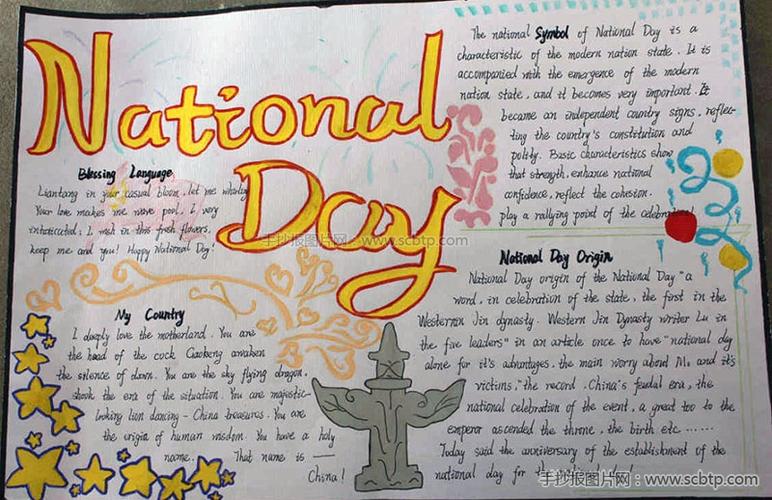 National
Day
The national Symbol of National Day is a
characteristic of the modern nation state. It is
accompanied with the emergence of the modern
nation state, and it becomes very important. It
became an independent country signs, reflec-
ting the country's constitution and
polity. Basic characteristics show
that strength, enhance national
confidence, reflect the cohesion.
play a rallying point of the
Blessing Language
Liantang in your casual bloom, let me
Your love makes me wave pool, I very
intoxicated; I wish in this fresh flowers,
keep me and you! Happy National Day!
手抄报图片网:www.scbtp.com
National Day Origin
National Day origin of the National Day "a
word, in celebration of the state, the first in the
Westernin Jin dynasty. Western Jin Dynasty writer Lu in
the five leaders" in an article once to have "national day
alone for it's advantages, the main worry about Mu and it's
victims," the record. China's feudal era, the
national celebration of the event, a great too to the
emperor ascended the throne, the birth etc ......
Today said the anniversary of the establishment of the
national day for the
My Country
I deeply love the motherland. You are
the head of the cock Gaokeng awaken
the silence of dawn. You are the sky flying dragon,
shook the era of the situation. You are majestic-
looking lion dancing - China treasures. You are
the origin of human wisdom. You have a holy
name. That name is ——
China!
手抄报图片网:www.scbtp.com